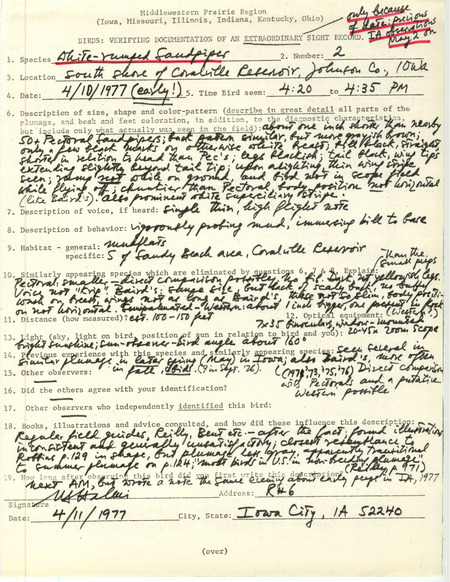 Middlewestern Prairie Region
(Iowa, Missouri, Illinois, Indiana, Kentucky, Ohio)
only because
of date: previous
IA observations
May 2 on
BIRDS: VERIFYING DOCUMENTATION OF AN EXTRAORDINARY SIGHT RECORD
1. Species White-rumped Sandpiper 2. Number: 2
3. Location South Shore of Coralville Reservoir, Johnson Co., Iowa
4. Date: 4/10/1977 (early!) 5. Time Bird seen: 4:20 to 4:35 PM
6. Description of size, shape and color-pattern (describe in great detail all parts of the
plumage, and beak and feet coloration, in addition, to the diagnostic characteristics,
but include only what actually was seen in the field): about one inch shorter than nearby
50± Pectoral Sandpipers; back pattern similar, but grayish with brown;
only a few streak marks on otherwise white breast, bill black, straight,
shorter in relation to head than Pec's; legs blackish; tail black, wing tips
extending slightly beyond tail tip; upon alighting, thin wing stripe
seen; rump not visible on ground, and bird not in scope field
while flying off; chunkier than Pectoral, body position not horizontal
(like Baird's). also prominent white superciliary stripe.
7. Description of voice, if heard: simple thin, high flight note
8. Description of behavior: vigorously probing mud, immersing bill to base
9. Habitat - general: mudflats
specific: S of Sandy Beach area, Coralville Reservoir
10. Similarly appearing species which are eliminated by questions 6, 7 & 8. Explain:
than the
small peeps
Pectoral: smaller in direct comparison
voice not "Krip". Baird's:
on breast, wings not as long as Baird's,
on not horizontal. Semipalmated-Western:
11. Distance (how measured): est. 100-150 feet 12. Optical equipment:
7x35 Binoculars, window-mounted
20-45x Zoom Scope
13. Light (sky, light on bird, position of sun in relation to bird and you):
bright sunshine; sun-observer-bird angle about 160°
14. Previous experience with this species and similarly appearing species: seen several in
similar plumage in later spring (May) in Iowa; also Baird's, more often
in fall
15. Other observers: (9 in Sept. 76). (1970, 73, 75, 76) Direct comparison
with Pectorals and a putative
Western possible
16. Did the others agree with your identification?
17. Other observers who independently identified this bird:
18. Books, illustrations and advice consulted, and how did these influence this description:
Regular field guides, Reilly, Bent etc. - after the fact; found illustrations
inconsistent and generally unsatisfactory; closest resemblance to
Robbins p. 129 in shape, but plumage less gray, apparently transitional
to summer plumage on p. 124; "most birds in U.S. in non-breeding plumage"
(Reilly, p 971)
19. How long after observing this bird did you first write this description?
next AM, but wrote a note the same evening about early peeps in IA, 1977
Signature Address: RR 6
Date: 4/11/1977 City, State: Iowa City, IA 52240
(over)